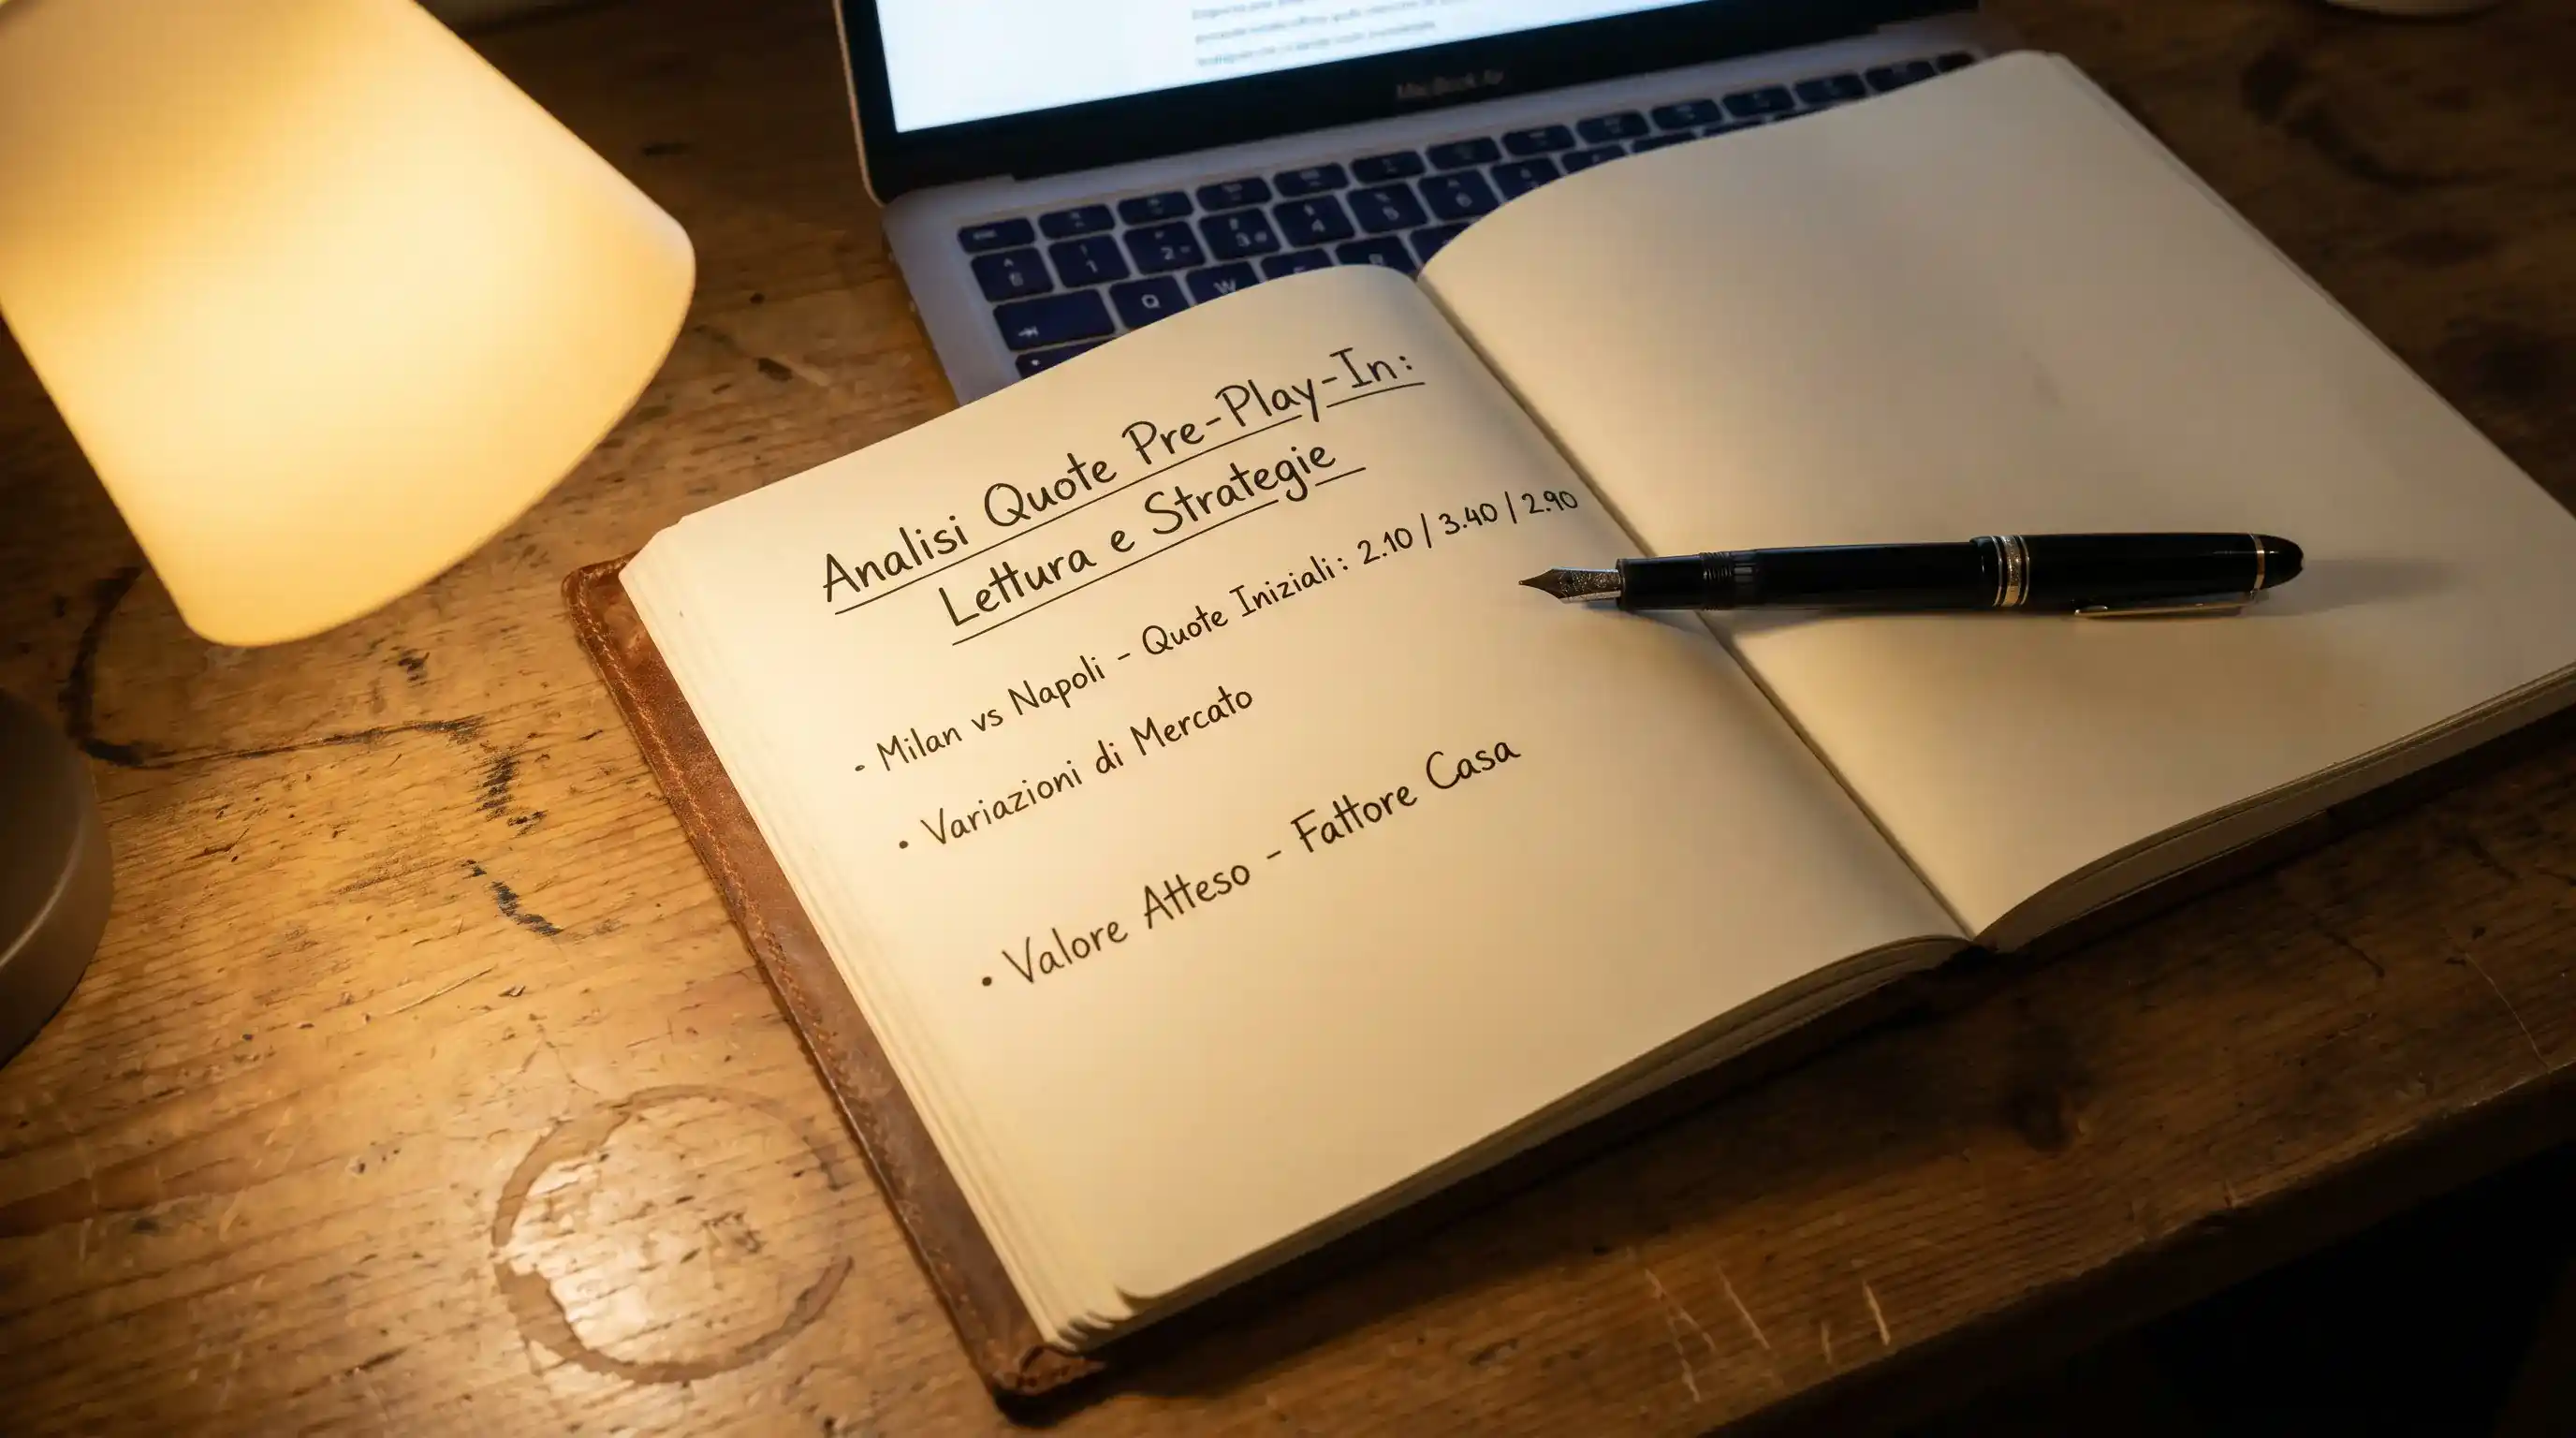 MacBook Air
Analisi Quote Pre-Play-In:
Lettura e Strategie
• Milan vs Napoli - Quote Iniziali: 2.10 / 3.40 / 2.90
• Variazioni di Mercato
• Valore Atteso - Fattore Casa